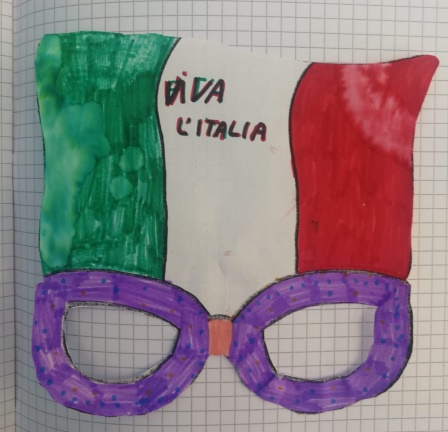 VIVA
L'ITALIA